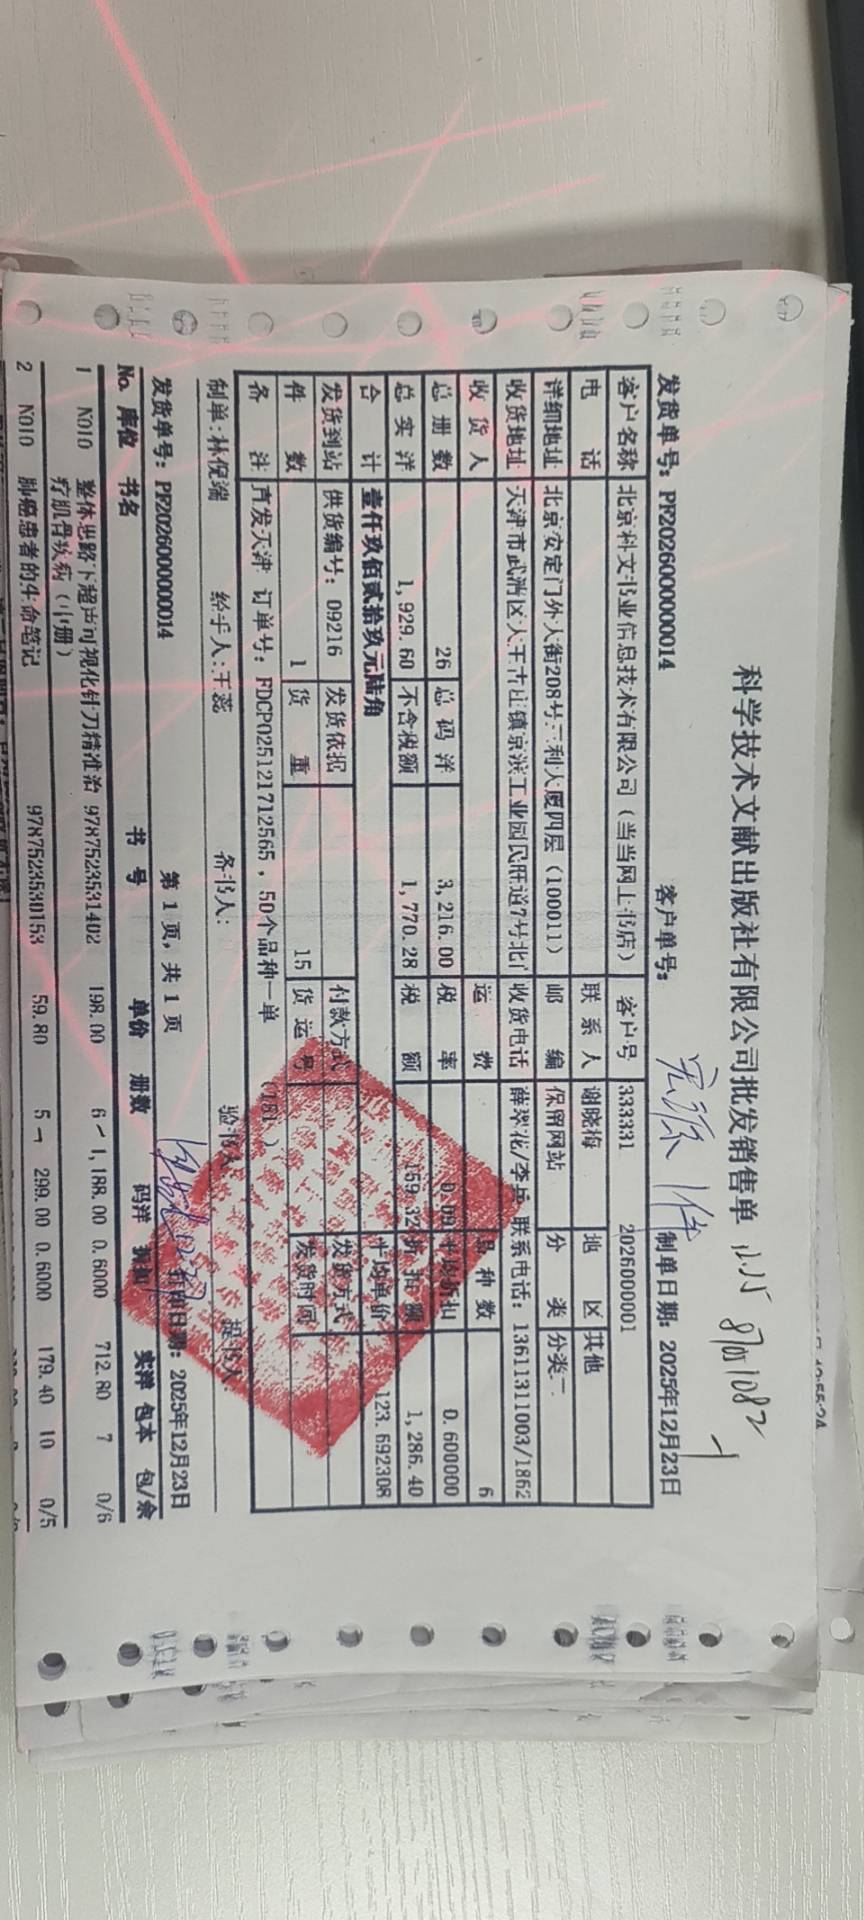 科学技术文献出版社有限公司批发销售单
发货单号: PF2026000000014 客户单号: 制单日期: 2025年12月23日
客户名称 北京科文书业信息技术有限公司（当当网上书店） 客户号 333331 2026000001
电 话 联系人 谢晓梅 地 区 其他
详细地址 北京安定门外大街208号三利大厦四层（100011） 邮 编 保留网站 分 类 分类二
收货地址 天津市武清区大王古庄镇京滨工业园民旺道7号北门 收货电话 薛翠花/李岳 联系电话: 13611311003/1862
收 货 人 运 费 品 种 数 6
总 册 数 26 总 码 洋 3,216.00 税 率 0.09 平均折扣 0.600000
总 实 洋 1,929.60 不含税额 1,770.28 税 额 159.32 折 扣 额 1,286.40
合 计 壹仟玖佰贰拾玖元陆角 平均单价 123.692308
发货到站 供货编号: 09216 发货依据 付款方式 发货方式
件 数 1 货 重 15 货 运 号 发货时间
备 注 直发天津 订单号: FDCP025121712565，50个品种一单 (181 )
制单: 经手人: 王蕊 备书人: 验书人 提书人:
发货单号: PF2026000000014 第 1 页, 共 1 页 打印日期: 2025年12月23日
No. 库位 书名 书 号 单价 册数 码洋 折扣 实洋 包本 包/余
1 N010 整体思路下超声可视化针刀精准治 9787523531402 198.00 6 1,188.00 0.6000 712.80 7 0/6
疗肌骨疾病（中册）
2 N010 肺癌患者的生命笔记 9787523530153 59.80 5 299.00 0.6000 179.40 10 0/5